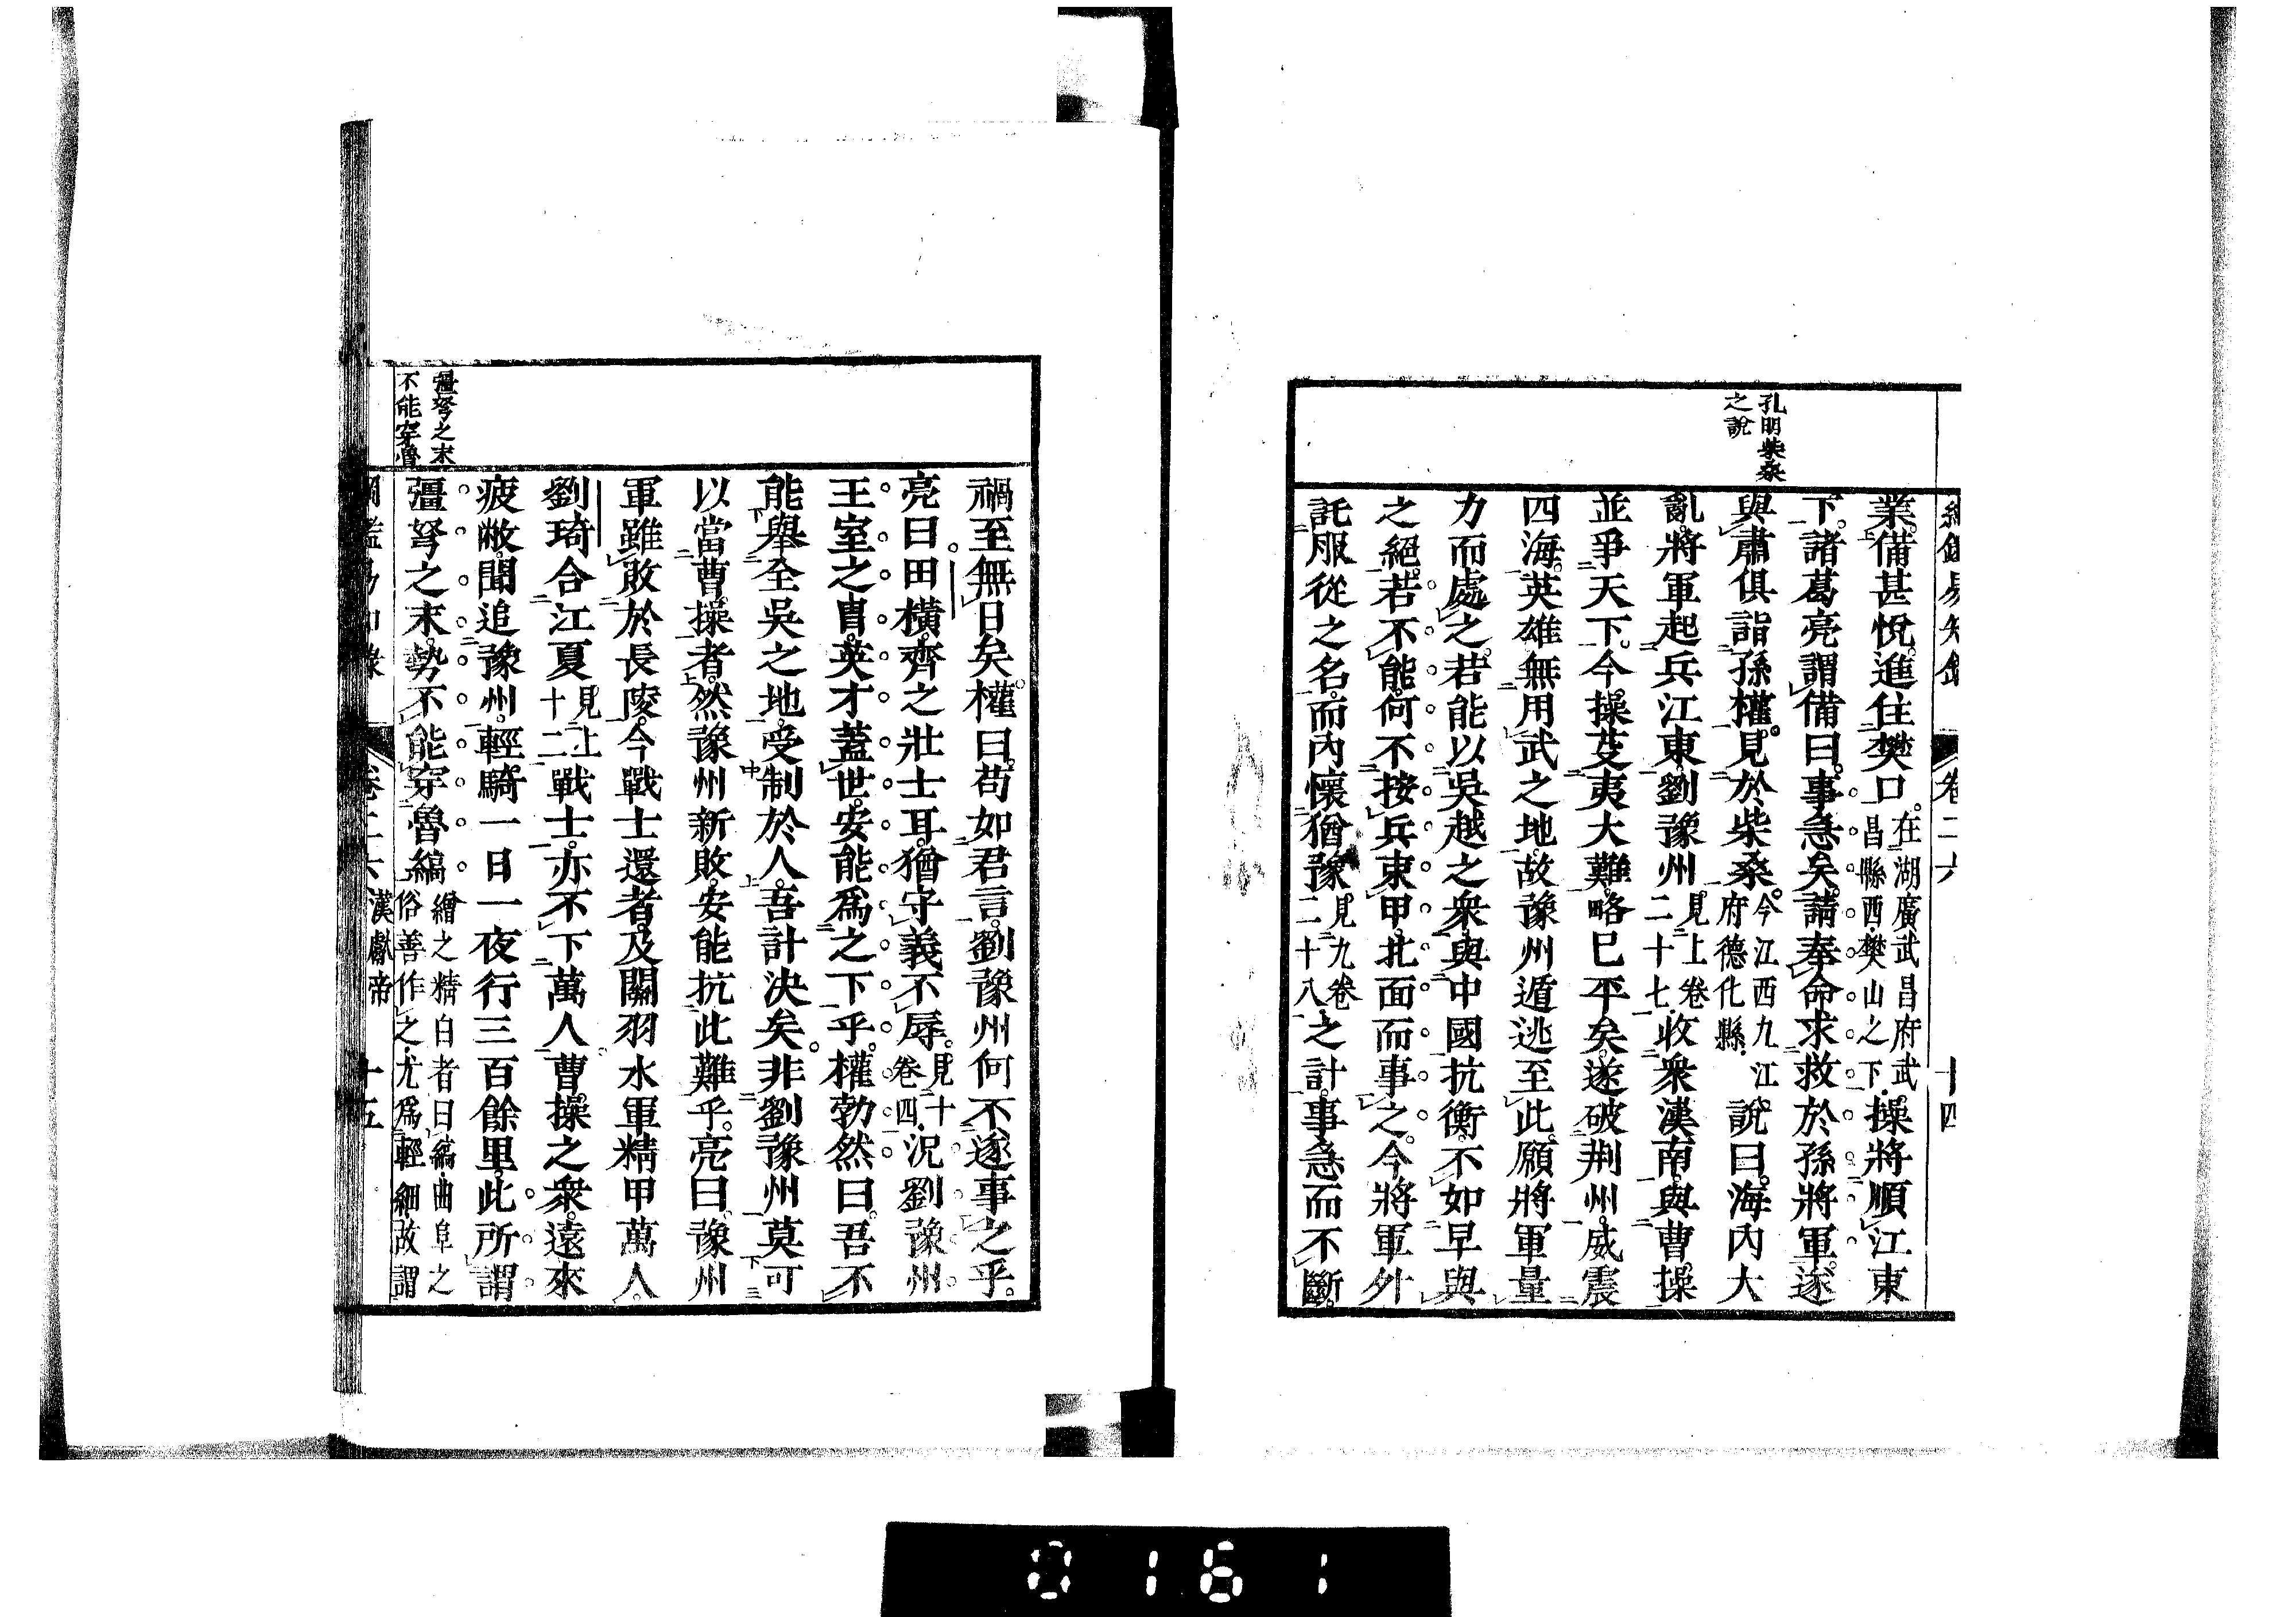 綱鑑易知錄 卷二六 十四
孔明柴桑
之說
業。備甚悅。進住樊口。在湖廣武昌府武昌縣西樊山之下。操將順江東
下。諸葛亮謂備曰。事急矣。請奉命求救於孫將軍。遂
與肅俱詣孫權。見於柴桑。今江西九江府德化縣。說曰。海內大
亂。將軍起兵江東。劉豫州見上卷二十七。收衆漢南。與曹操
並爭天下。今操芟夷大難。略已平矣。遂破荆州。威震
四海。英雄無用武之地。故豫州遁逃至此。願將軍量
力而處之。若能以吳越之衆。與中國抗衡。不如早與
之絕。若不能。何不按兵束甲。北面而事之。今將軍外
託服從之名。而內懷猶豫見九卷二十八。之計。事急而不斷。
禍至無日矣。權曰。苟如君言。劉豫州何不遂事之乎。
亮曰。田橫。齊之壯士耳。猶守義不辱。見十卷四。況劉豫州
王室之胄。英才蓋世。安能爲之下乎。權勃然曰。吾不
能舉全吳之地。受制於人。吾計決矣。非劉豫州莫可
以當曹操者。然豫州新敗。安能抗此難乎。亮曰。豫州
軍雖敗於長陵。今戰士還者。及關羽水軍精甲萬人。
劉琦合江夏見上十二戰士。亦不下萬人。曹操之衆。遠來
疲敝。聞追豫州。輕騎一日一夜行三百餘里。此所謂
彊弩之末。勢不能穿魯縞繒之精白者曰縞。曲阜之俗善作之。尤爲輕細。故謂
彊弩之末
不能穿魯
綱鑑易知錄 卷二六 漢獻帝 十五
0161